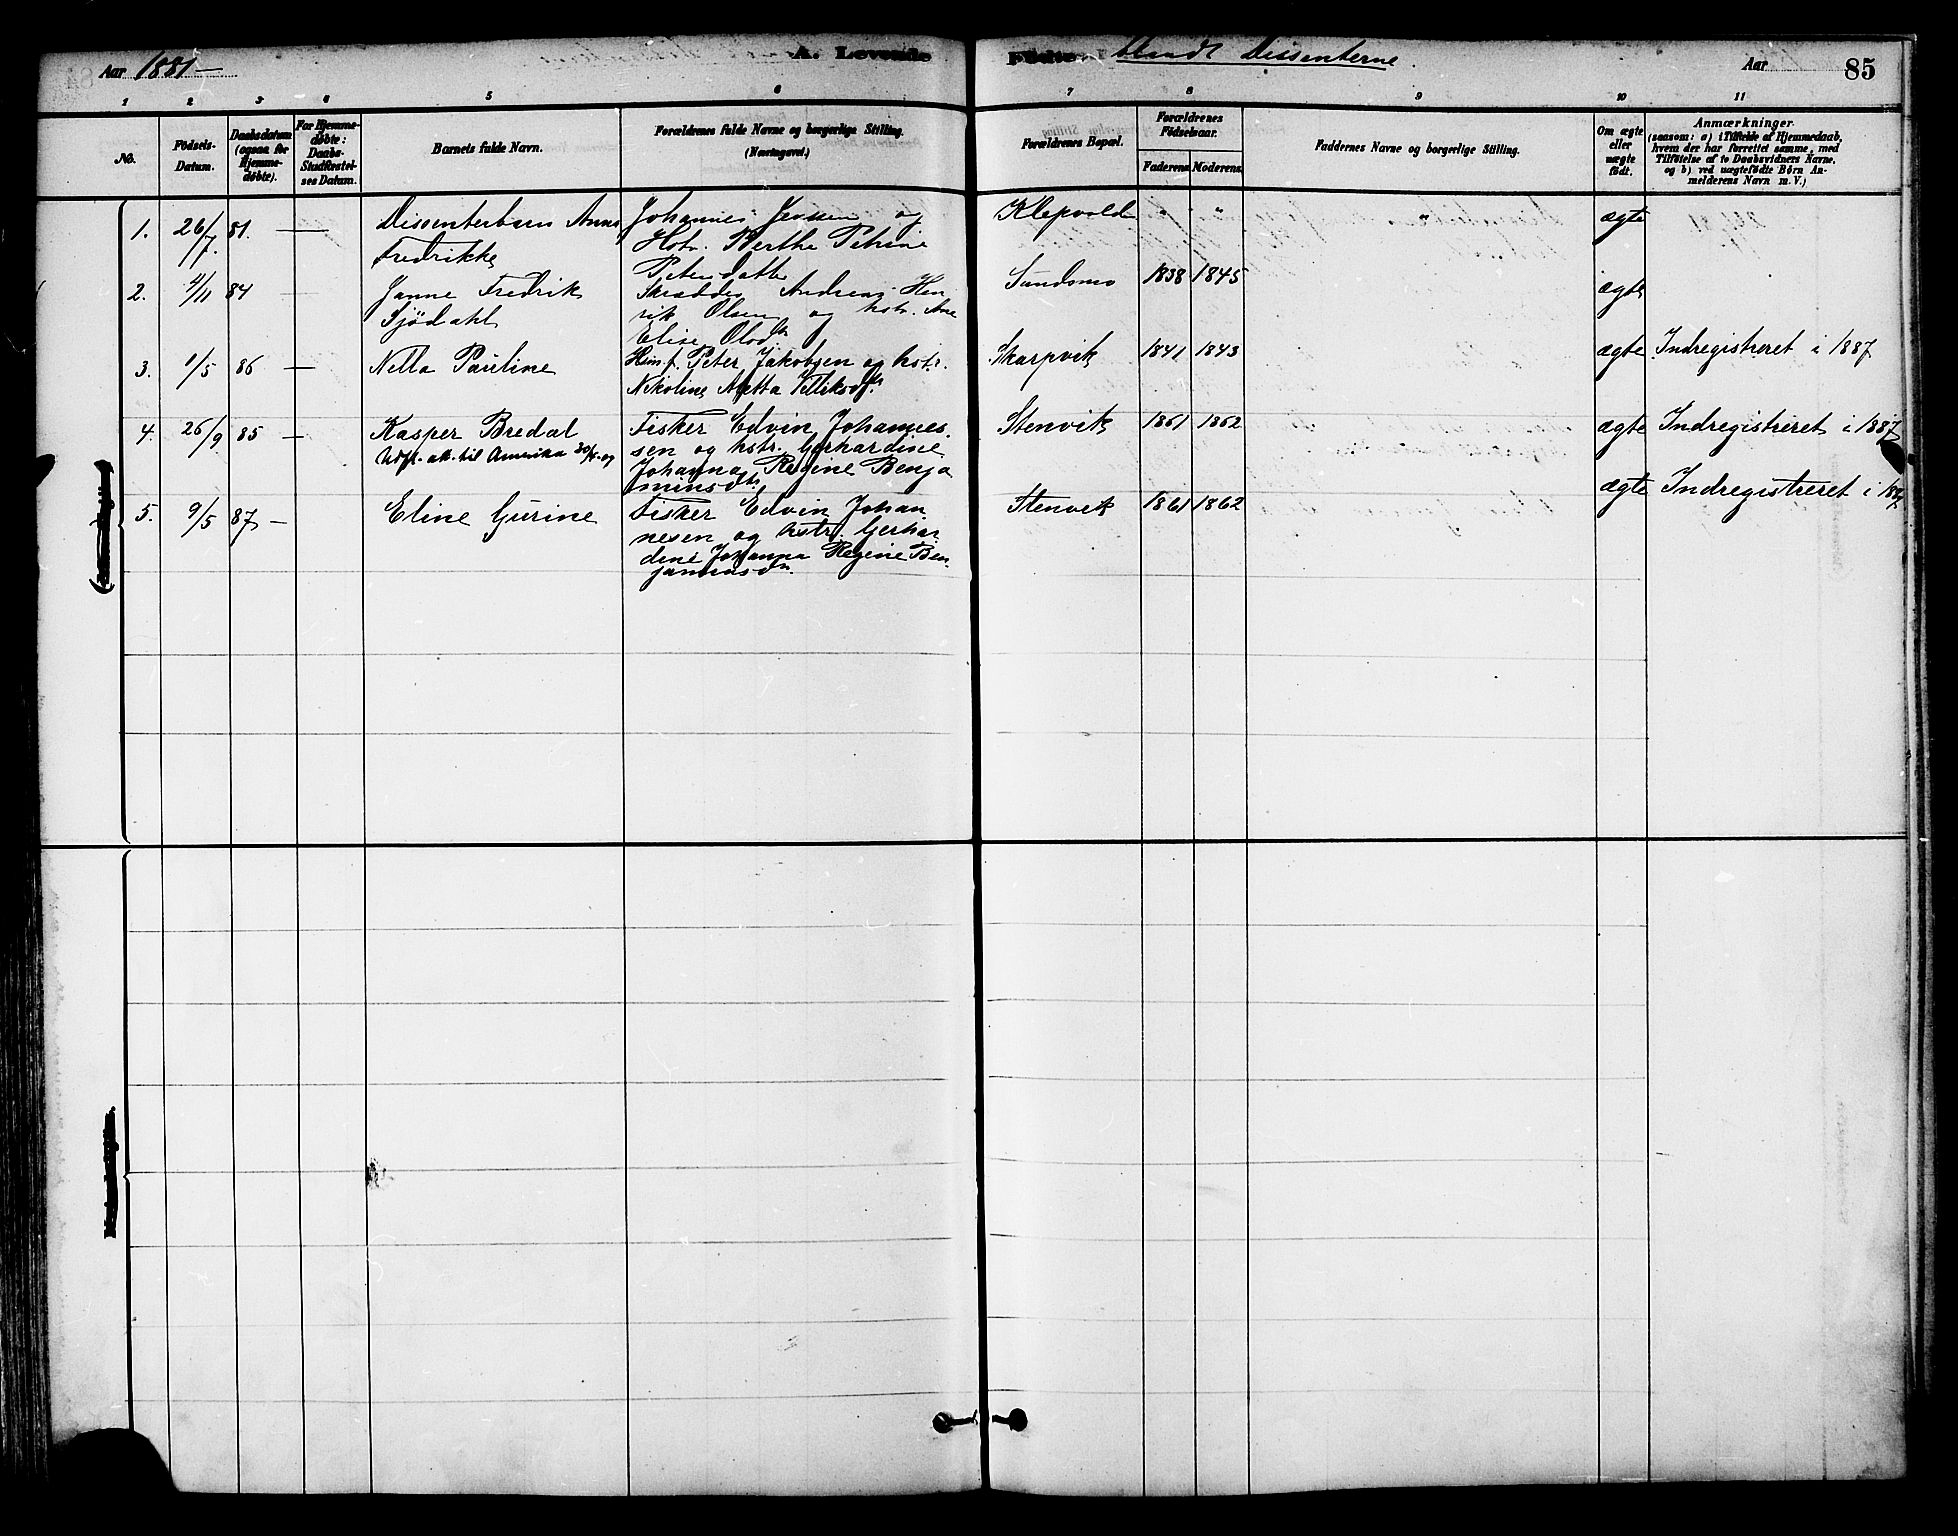 Aar 1881-
A. Levende Fødte blandt Dissenterne.
Aar
85
1 2 3 4 5 6 7 8 9 10 11
No.
Fødsels-
Datum.
Daabsdatum
(ogsaa for
Hjemme-
døbte).
For Hjemme-
døbte:
Daabs-
Stadfæstel-
ses Datum.
Barnets fulde Navn.
Forældrenes fulde Navne og borgerlige Stilling.
(Næringsvei.)
Forældrenes Bopæl.
Forældrenes
Fødselsaar.
Faderens. Moderens.
Faddernes Navne og borgerlige Stilling.
Om ægte
eller
uægte
født.
Anmærkninger.
(saasom: a) i Tilfælde af Hjemmedaab,
hvem der har forrettet samme, med
Tilføielse af to Daabsvidners Navne,
og b) ved uægtefødte Børn An-
melderens Navn m. V.)
1. 26/7 81. —
Dissenterbarn Anna
Fredrikke
Johannes Jensen og
Hstr. Berthe Petrine
Petersdatter
Klepvold " " " ægte
2. 4/11 84 —
Janne Fredrik
Sjödahl
Skrædder Andreas Hen
rik Olsen og hstr. Ane
Elise Olsd.
Sundsmo 1838 1845 ægte
3. 1/5 86 —
Netta Pauline
Peter Jakobsen og hstr.
Nikoline Metta
Skarpvik 1841 1843 ægte Indregistreret i 1887
4. 26/9 85 —
Kasper Bredal
Udfl. att. til Amerika 30/4-09
Fisker Edvin Johannes
sen og hstr. Gerhardine
Johanna Regine Benja
minsdtr.
Stenvik 1861 1862 ægte Indregistreret i 1887
5. 9/5 87 —
Eline Gurine
Fisker Edvin Johan
nesen og hstr. Gerhar
dine Johanna Regine Ben
jaminsdtr.
Stenvik 1861 1862 ægte Indregistreret i 1887